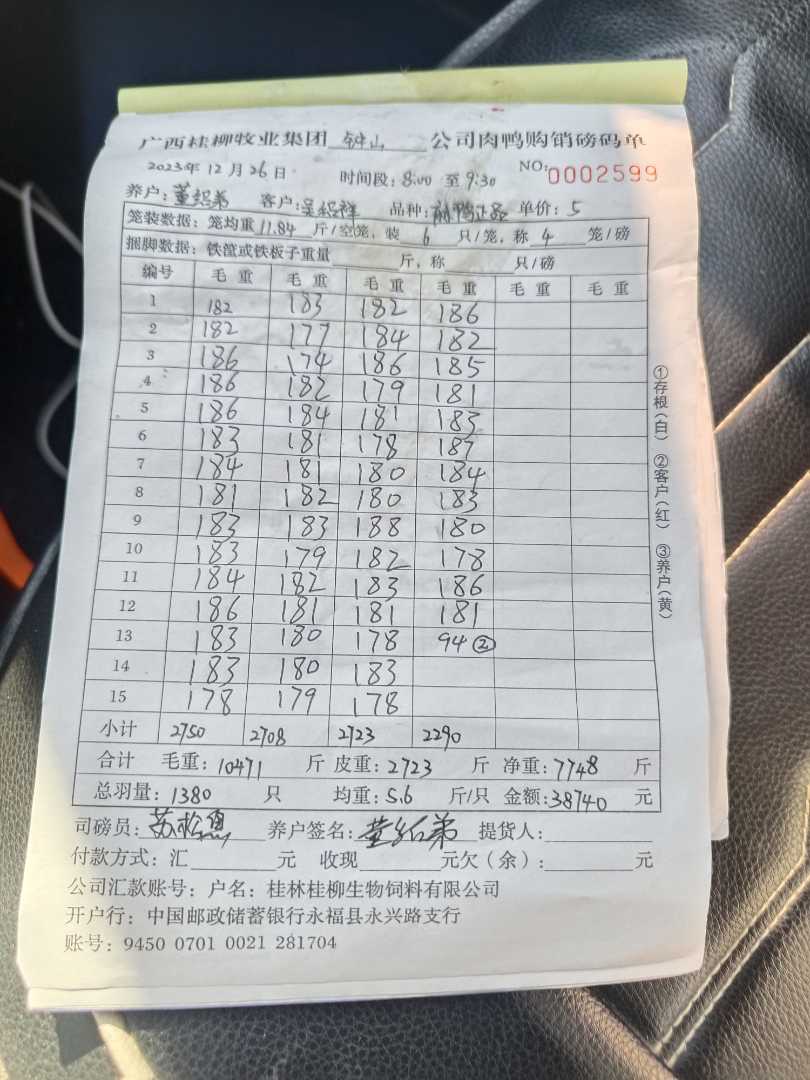 广西桂柳牧业集团 钟山 公司肉鸭购销磅码单
2023年12月26日 时间段: 8:00 至 9:30 NO: 0002599
养户: 董绍弟 客户: 吴绍祥 品种: 正品 单价: 5
笼装数据: 笼均重 11.84 斤/空笼, 装 6 只/笼, 称 4 笼/磅
捆脚数据: 铁筐或铁板子重量 斤, 称 只/磅
编号 毛重 毛重 毛重 毛重 毛重 毛重
1 182 183 182 186
2 182 177 184 182
3 186 174 186 185
4 186 182 179 181
5 186 184 181 183
6 183 181 178 187
7 184 181 180 184
8 181 182 180 183
9 183 183 188 180
10 183 179 182 178
11 184 182 183 186
12 186 181 181 181
13 183 180 178 94 ②
14 183 180 183
15 178 179 178
小计 2750 2708 2723 2290
合计 毛重: 10471 斤 皮重: 2723 斤 净重: 7748 斤
总羽量: 1380 只 均重: 5.6 斤/只 金额: 38740 元
司磅员: 养户签名: 董绍弟 提货人:
付款方式: 汇 元 收现 元欠(余): 元
公司汇款账号: 户名: 桂林桂柳生物饲料有限公司
开户行: 中国邮政储蓄银行永福县永兴路支行
账号: 9450 0701 0021 281704
①存根(白) ②客户(红) ③养户(黄)